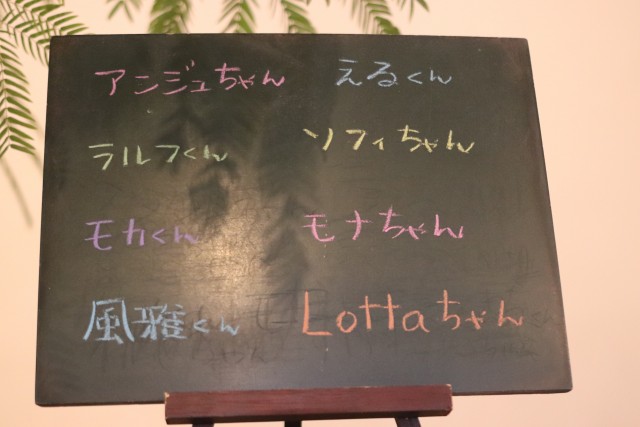 アンジュちゃん えるくん
ラルフくん ソフィちゃん
モカくん モナちゃん
風雅くん Lottaちゃん